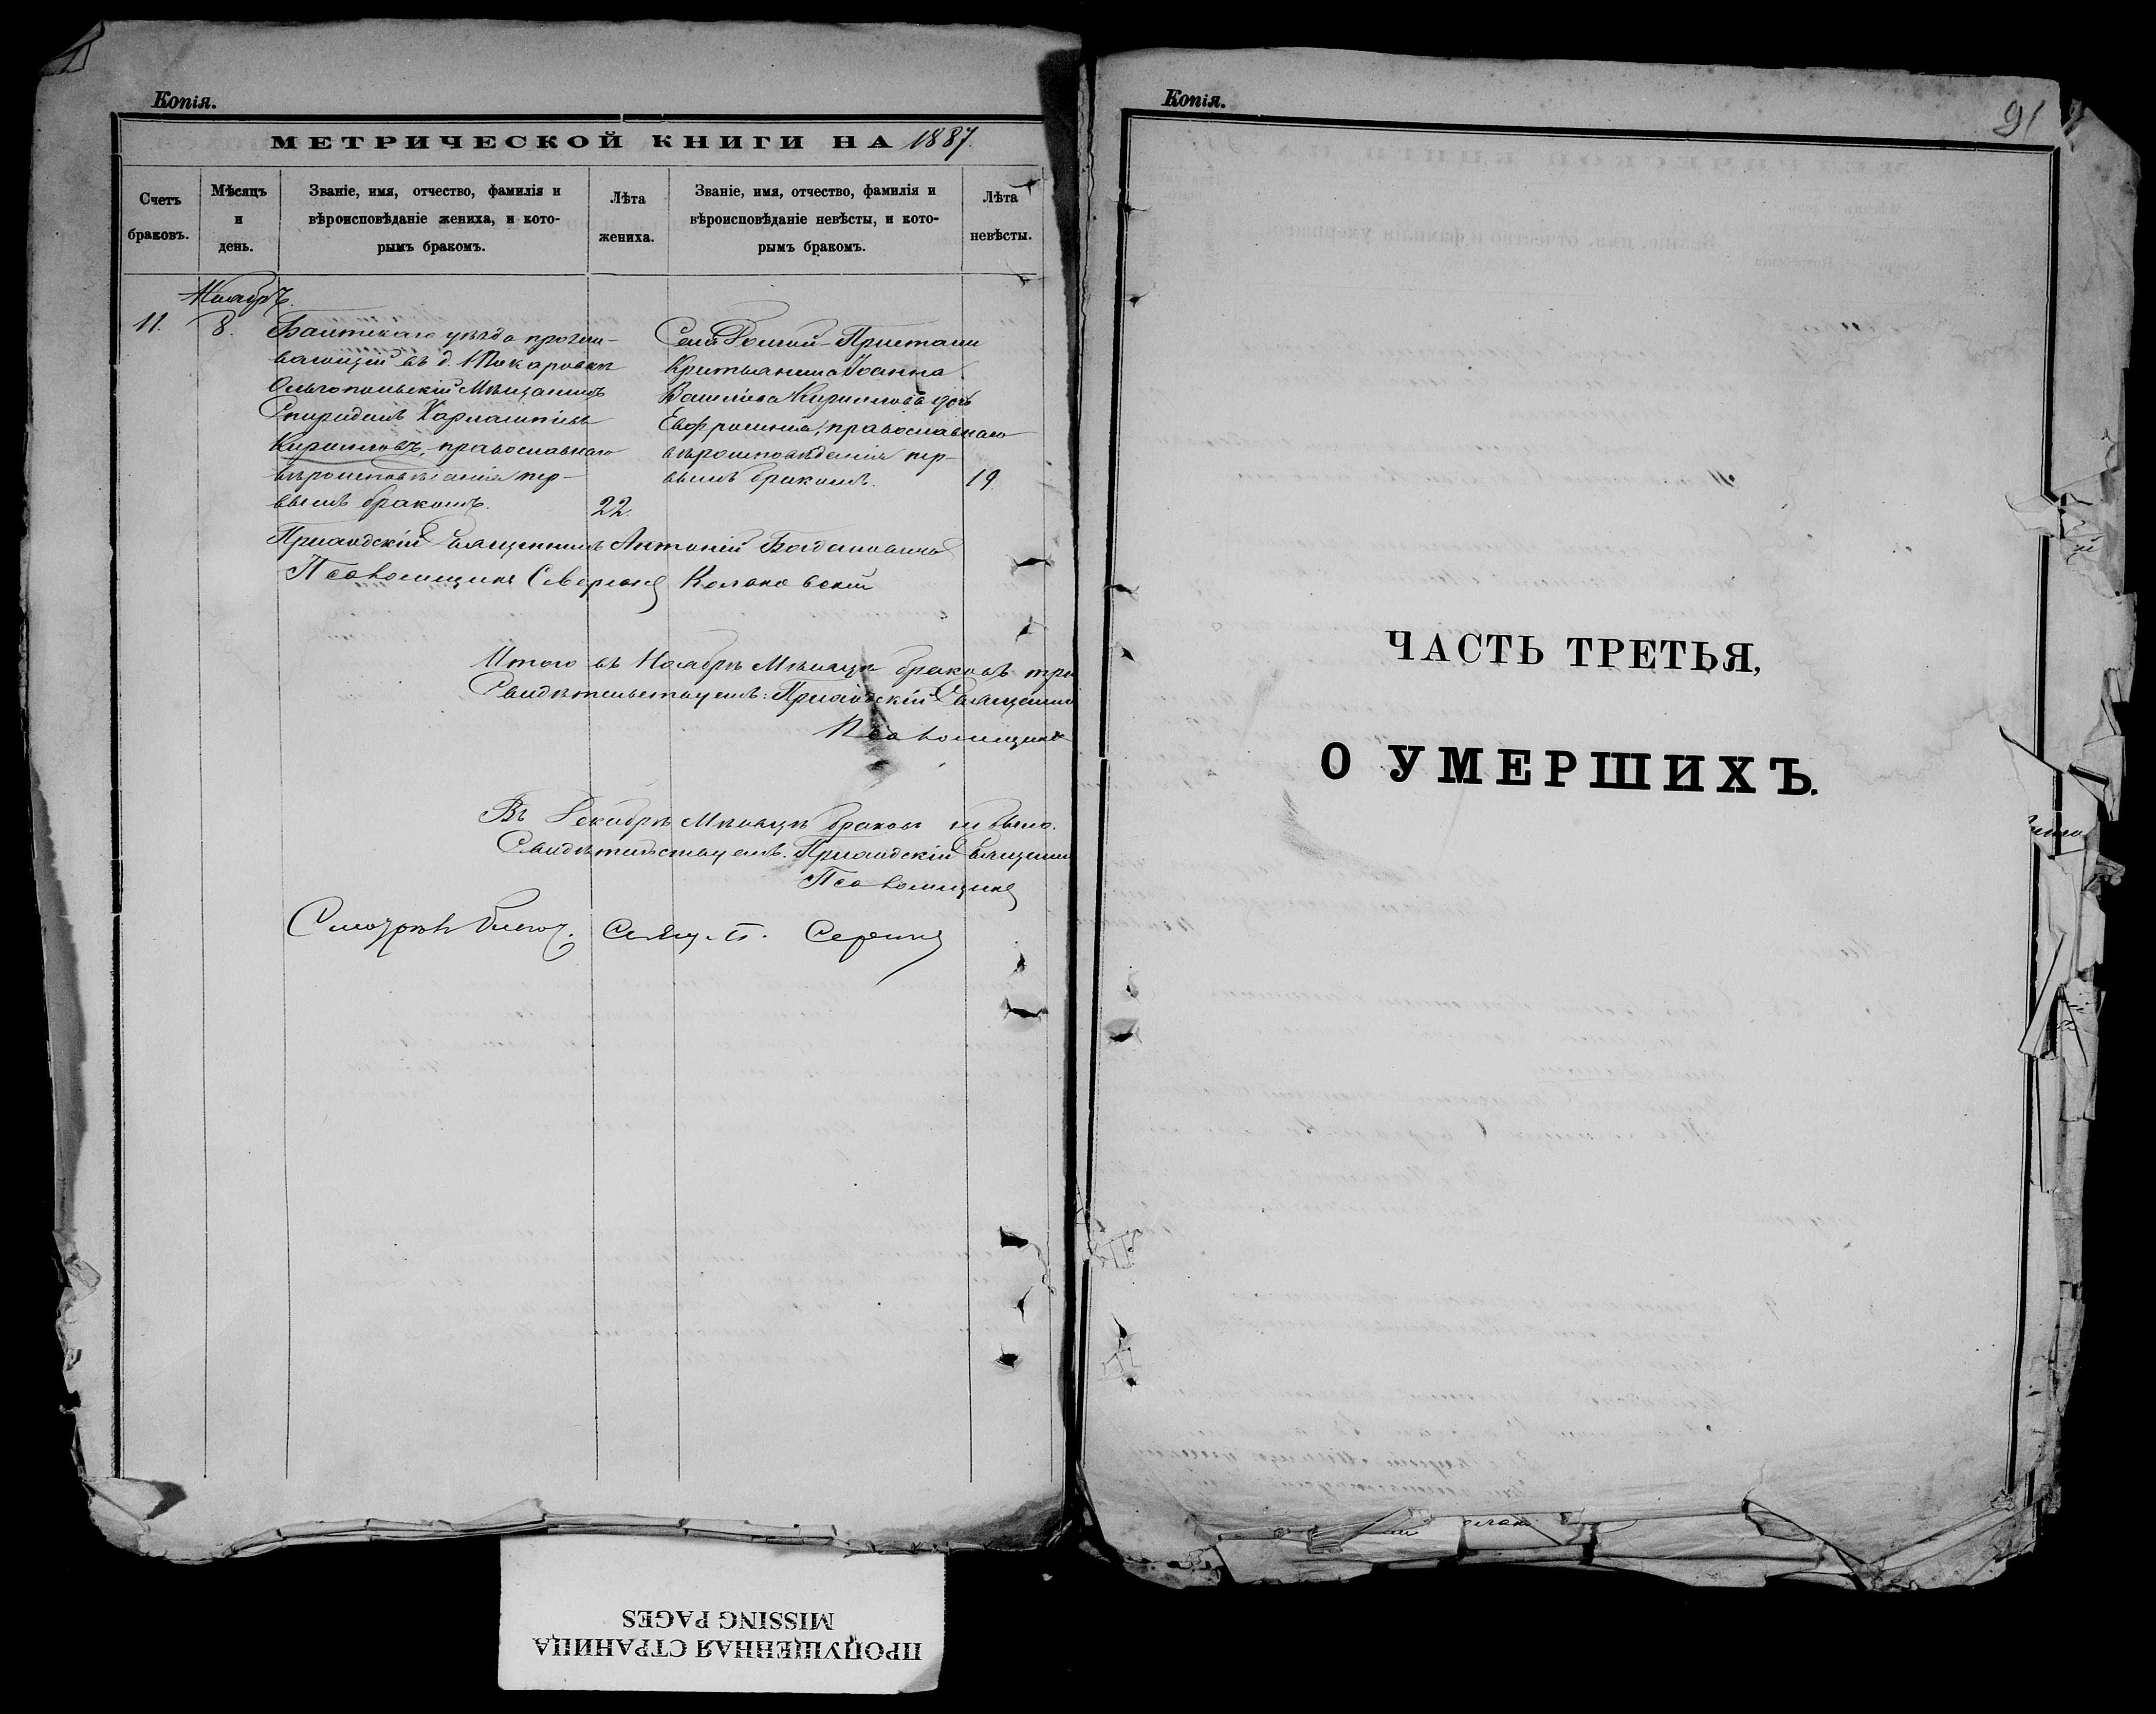 Копія.
МЕТРИЧЕСКОЙ КНИГИ НА 1887.
Счетъ браковъ.
Мѣсяцъ и день.
Званіе, имя, отчество, фамилія и вѣроисповѣданіе жениха, и которымъ бракомъ.
Лѣта жениха.
Званіе, имя, отчество, фамилія и вѣроисповѣданіе невѣсты, и которымъ бракомъ.
Лѣта невѣсты.
Ноябрь.
11.
8.
Балтскаго уѣзда прожи-
вающій въ д. Токаровкѣ
Ольгопольскій Мѣщанинъ
Спиридонъ Харлампіевъ
Кирилловъ, православнаго
вѣроисповѣданія пер-
вымъ бракомъ.
22.
Села Долгой-Пристани
Крестьянина Іоанна
Васильева Кириллова дочь
Евфросинія, православнаго
вѣроисповѣданія пер-
вымъ бракомъ.
19.
Приходскій Священникъ Антоній Богдановичъ
Псаломщикъ Северинъ
Итого въ Ноябрѣ Мѣсяцѣ браковъ три
Свидѣтельствуемъ: Приходскій Священни
Псаломщикъ
Въ Декабрѣ Мѣсяцѣ браковъ не было.
Свидѣтельствуемъ. Приходскій Священни
Псаломщикъ
Копія.
91
ЧАСТЬ ТРЕТЬЯ,
О УМЕРШИХЪ.
ПРОПУЩЕННАЯ СТРАНИЦА
MISSING PAGES